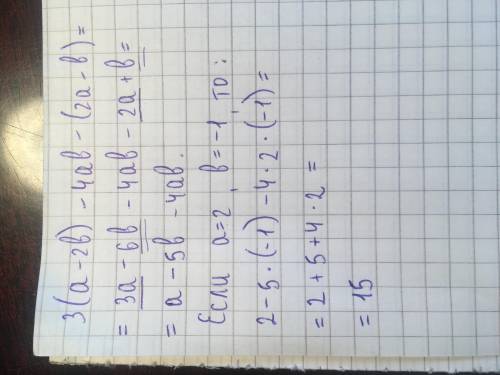 3(a-2b) - 4ab - (2a-b) =
= 3a - 6b - 4ab - 2a + b =
= a - 5b - 4ab.
Если a=2, b=-1, то:
2-5·(-1)-4·2·(-1)=
= 2+5+4·2 =
= 15